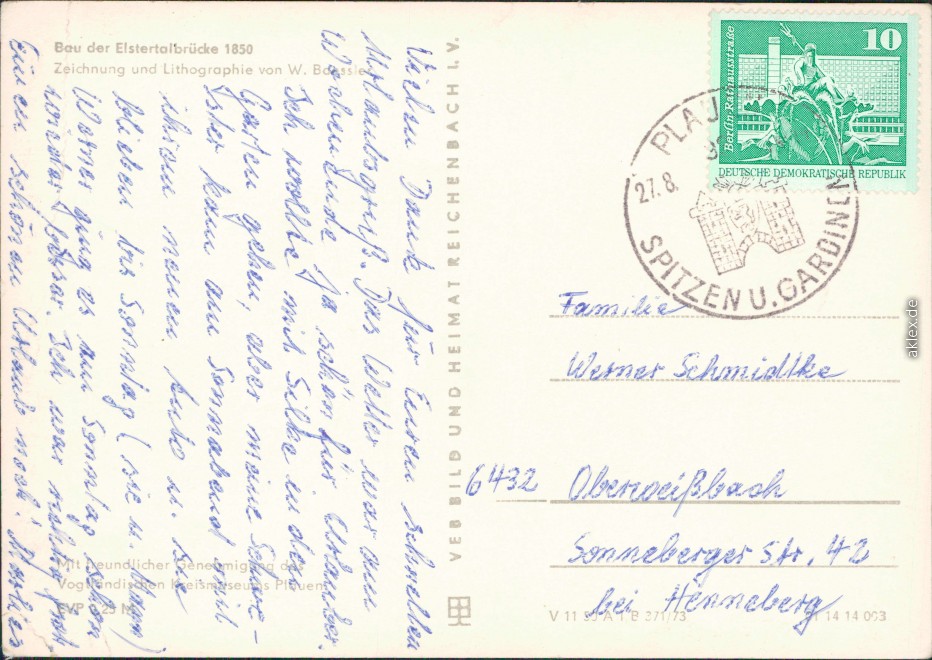 Bau der Elstertalbrücke 1850
Zeichnung und Lithographie von W. Baessler
Vielen Dank für Euren schnellen
Urlaubsgruß. Das Wetter war am
Wochenende ja schön für Urlauber.
Ich wollte mit Silke in den
Garten gehen, aber meine Schwe-
ster kam am Sonnabend mit
ihrem neuen Auto u.
blieben bis Sonntag (sie u. Mann)
Werner ging es am Sonntag schon
wieder besser. Ich war richtig froh
schönen Urlaub noch!
Mit freundlicher Genehmigung des
Vogtländischen Kreismuseums Plauen
EVP 0,25 M
VEB BILD UND HEIMAT REICHENBACH I. V.
10
Berlin-Rathausstraße
DEUTSCHE DEMOKRATISCHE REPUBLIK
PLAU
27.8.
SPITZEN U. GARDINEN
Familie
Werner Schmidtke
6432 Oberweißbach
Sonneberger Str. 42
bei Henneberg
V 11 50 A 1 B 371/73
01 14 14 093
aklex.de